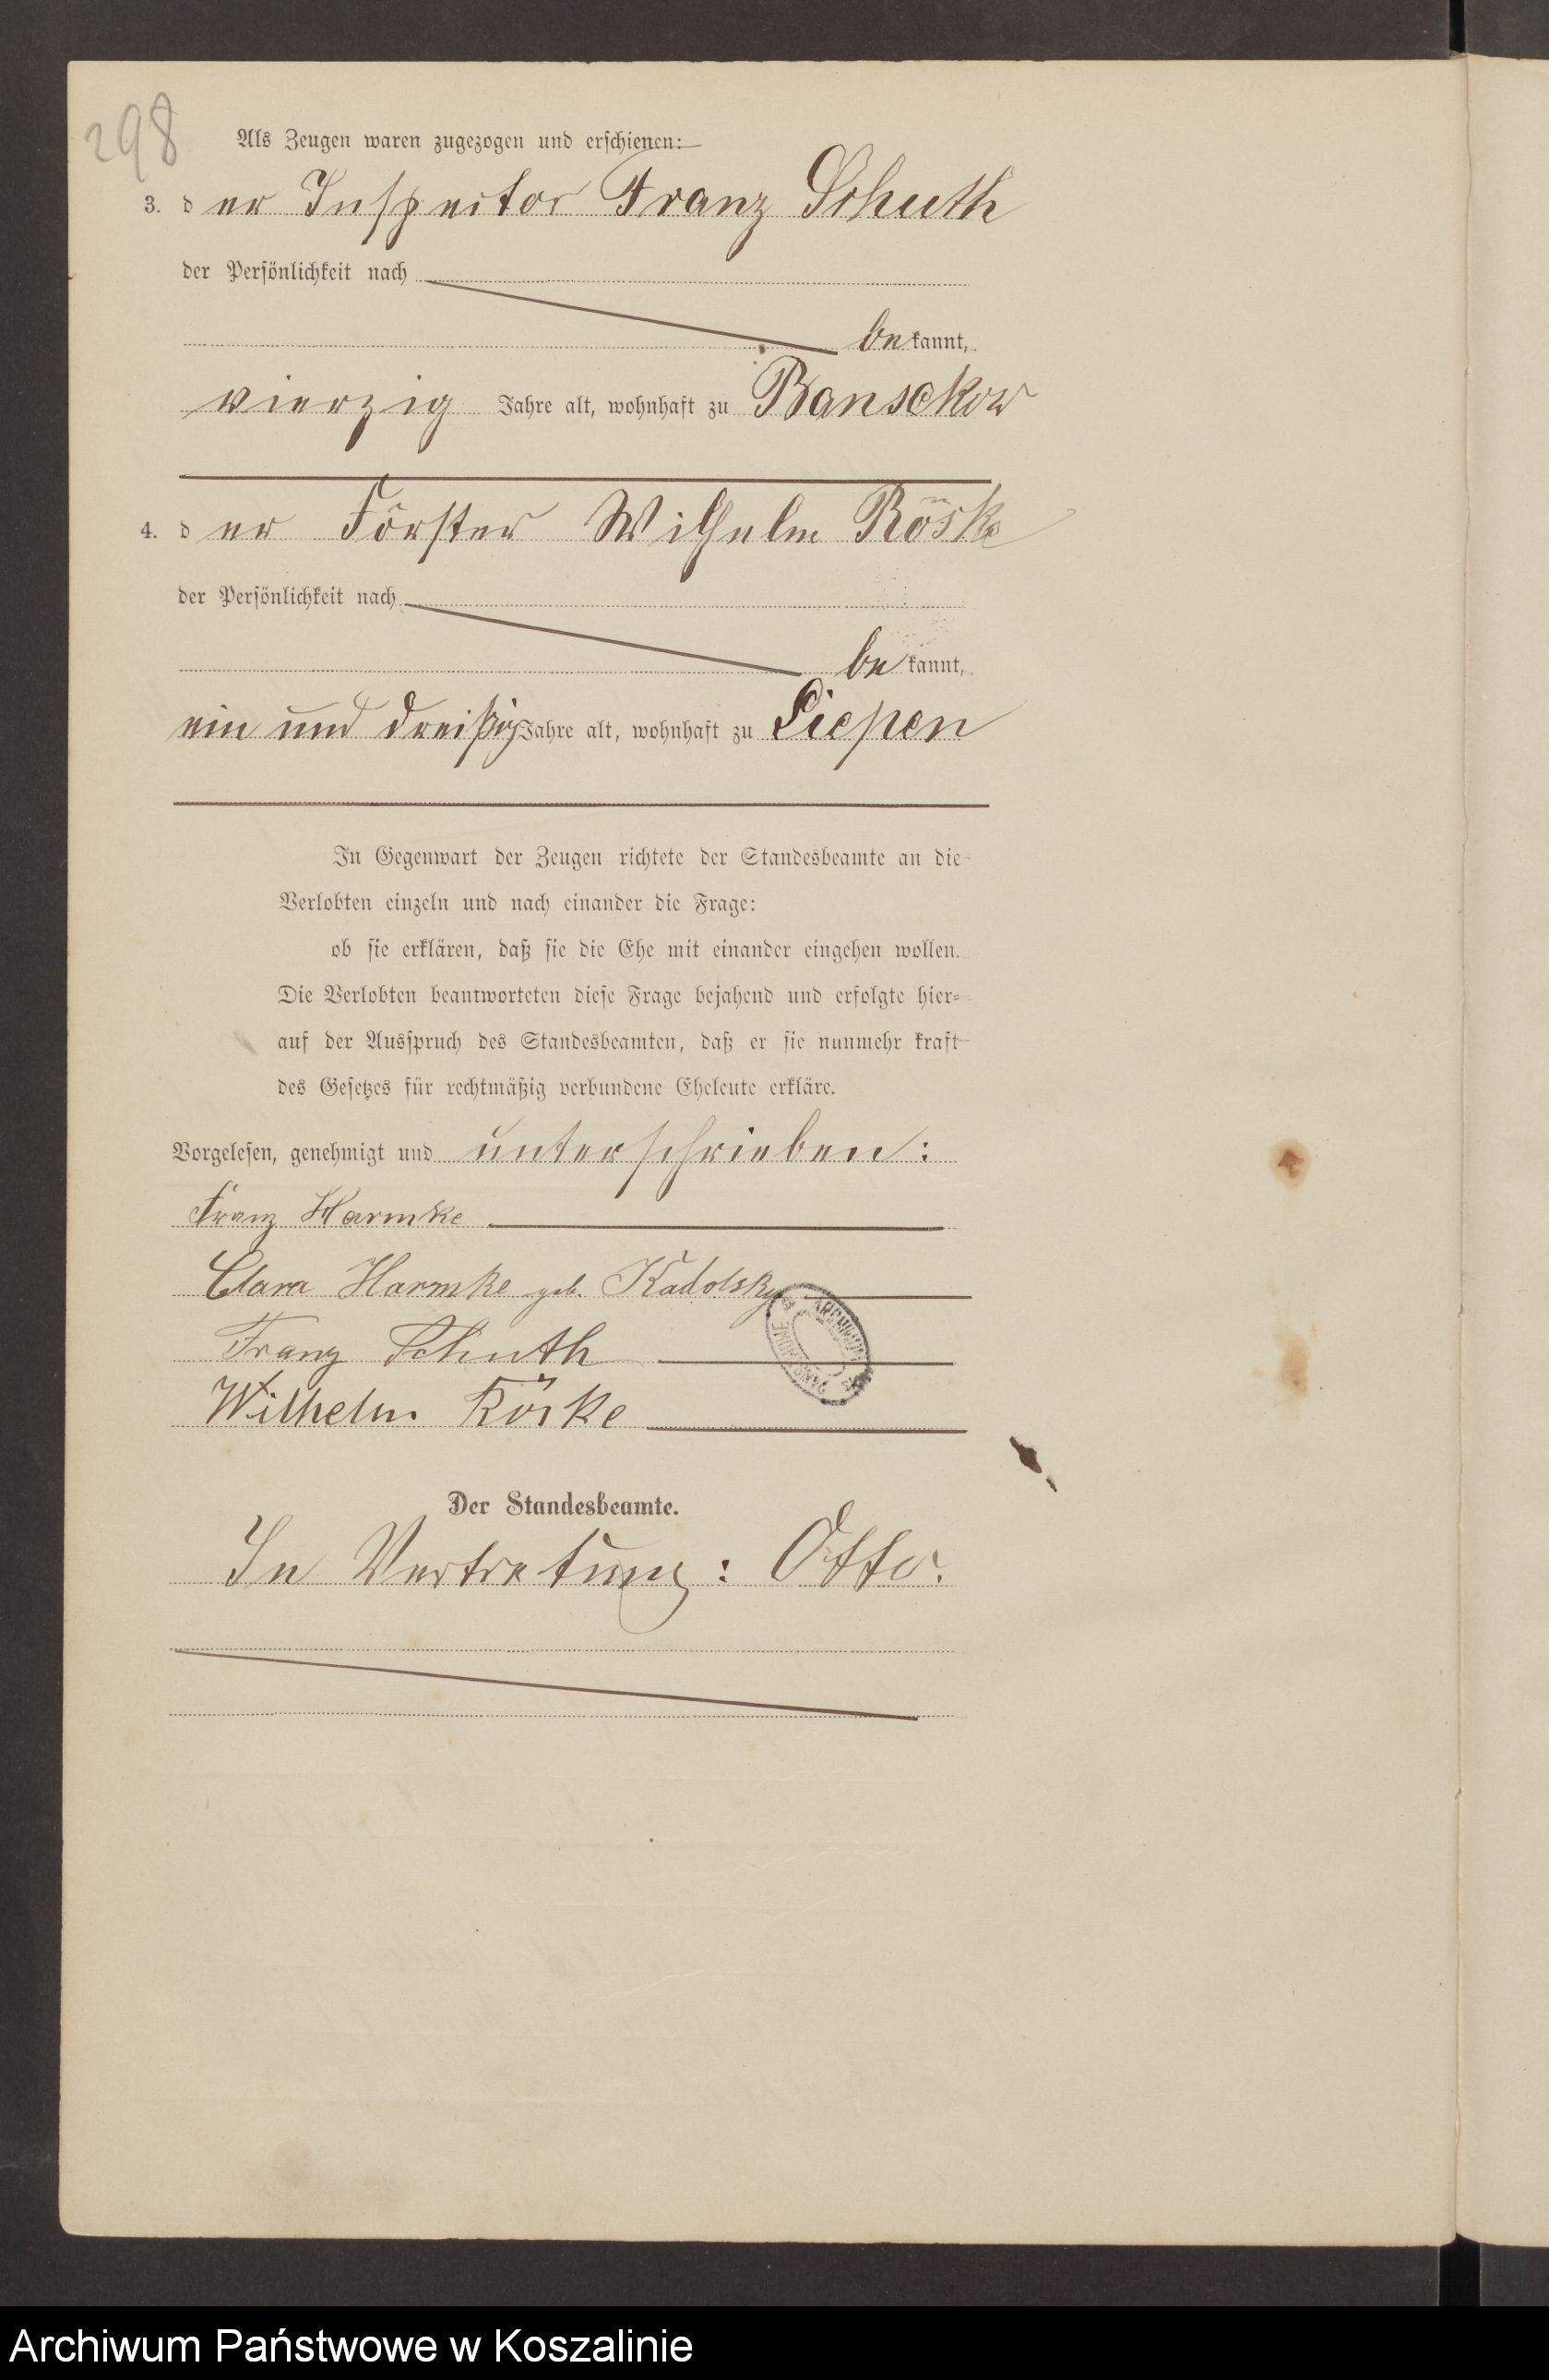 298
Als Zeugen waren zugezogen und erschienen:
3. der Inspector Franz Schuth
der Persönlichkeit nach
bekannt,
vierzig Jahre alt, wohnhaft zu Bansekow
4. der Förster Wilhelm Röske
der Persönlichkeit nach
bekannt,
ein und dreißig Jahre alt, wohnhaft zu Liepen
In Gegenwart der Zeugen richtete der Standesbeamte an die
Verlobten einzeln und nach einander die Frage:
ob sie erklären, daß sie die Ehe mit einander eingehen wollen.
Die Verlobten beantworteten diese Frage bejahend und erfolgte hier-
auf der Ausspruch des Standesbeamten, daß er sie nunmehr kraft
des Gesetzes für rechtmäßig verbundene Eheleute erkläre.
Vorgelesen, genehmigt und unterschrieben:
Franz Harmke
Clara Harmke geb. Kadolsky
Franz Schuth
Wilhelm Röske
Der Standesbeamte.
In Vertretung: Otto.
Archiwum Państwowe w Koszalinie